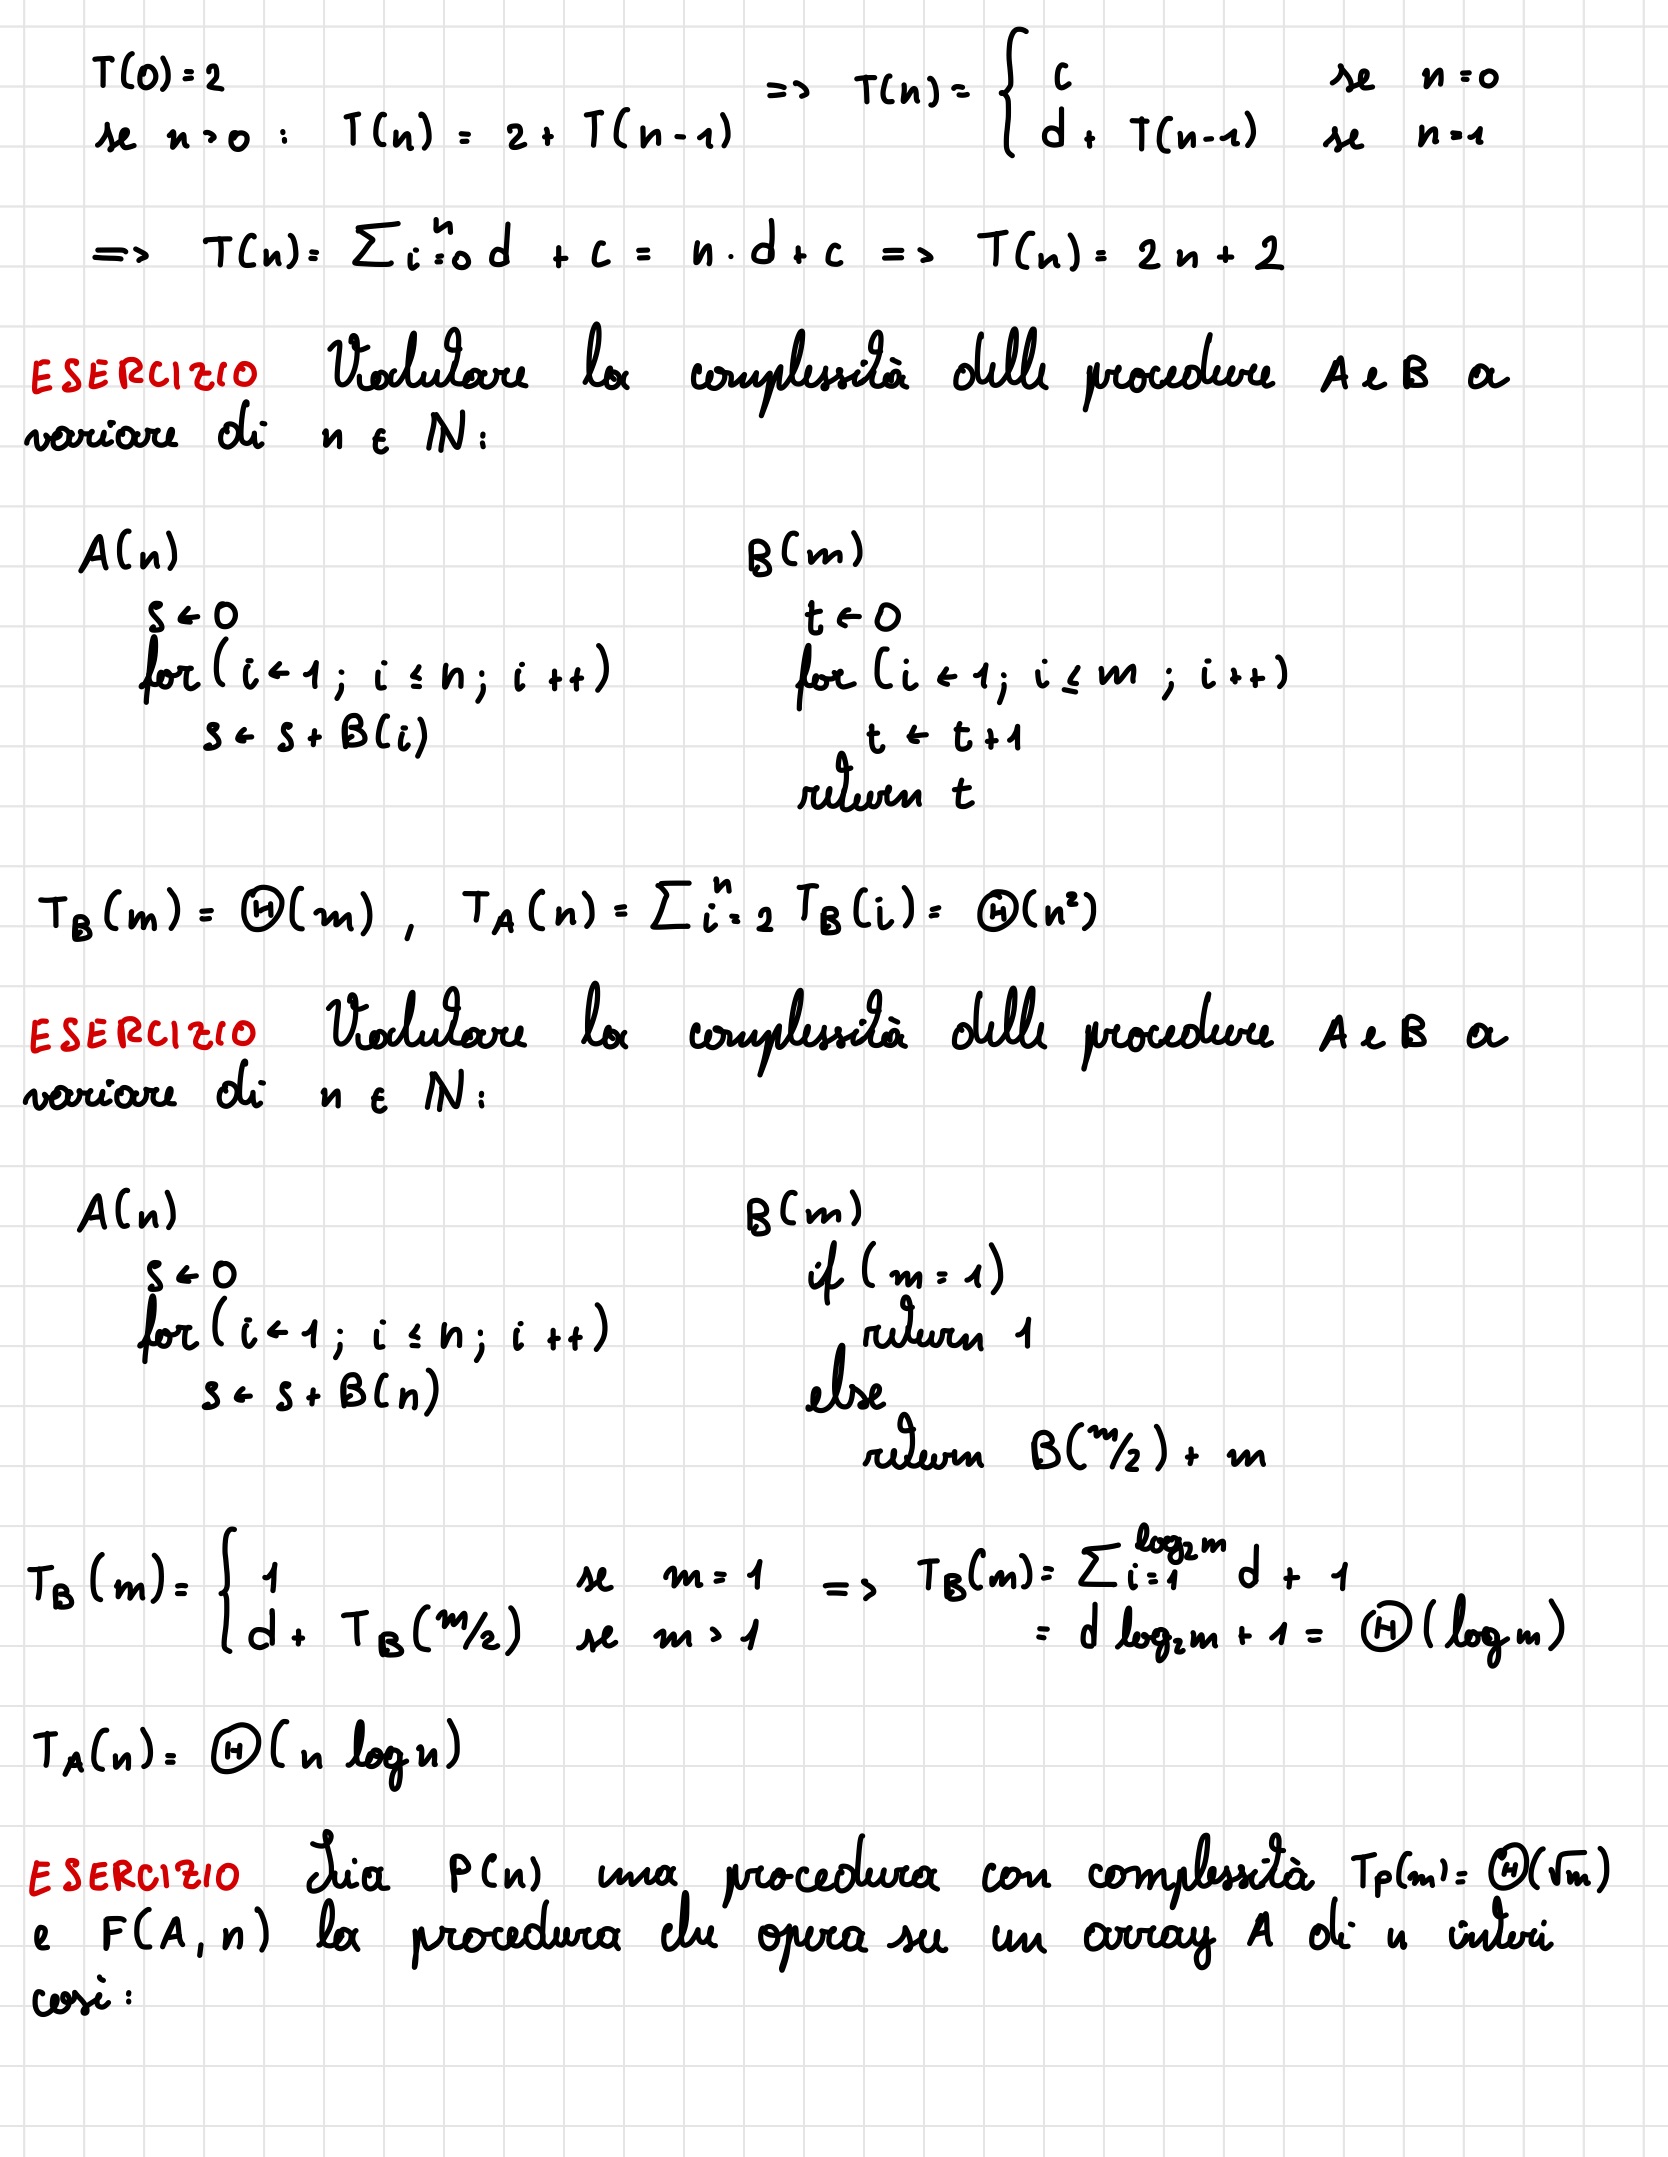 T(0) = 2
se n > 0 : T(n) = 2 + T(n-1) => T(n) = { c se n = 0
d + T(n-1) se n = 1
=> T(n) = ∑ i=0 ^n d + c = n · d + c => T(n) = 2n + 2
ESERCIZIO Valutare la complessità delle procedure A e B a
variare di n ∈ ℕ:
A(n)
s ← 0
for (i ← 1; i ≤ n; i ++)
s ← s + B(i)
B(m)
t ← 0
for (i ← 1; i ≤ m; i ++)
t ← t + 1
return t
T_B(m) = Θ(m), T_A(n) = ∑ i=2 ^n T_B(i) = Θ(n²)
ESERCIZIO Valutare la complessità delle procedure A e B a
variare di n ∈ ℕ:
A(n)
s ← 0
for (i ← 1; i ≤ n; i ++)
s ← s + B(n)
B(m)
if (m = 1)
return 1
else
return B(m/2) + m
T_B(m) = { 1 se m = 1 => T_B(m) = ∑ i=1 ^log₂m d + 1
d + T_B(m/2) se m > 1 = d log₂m + 1 = Θ(log m)
T_A(n) = Θ(n log n)
ESERCIZIO Sia P(n) una procedura con complessità T_P(m) = Θ(√m)
e F(A, n) la procedura che opera su un array A di n interi
così: